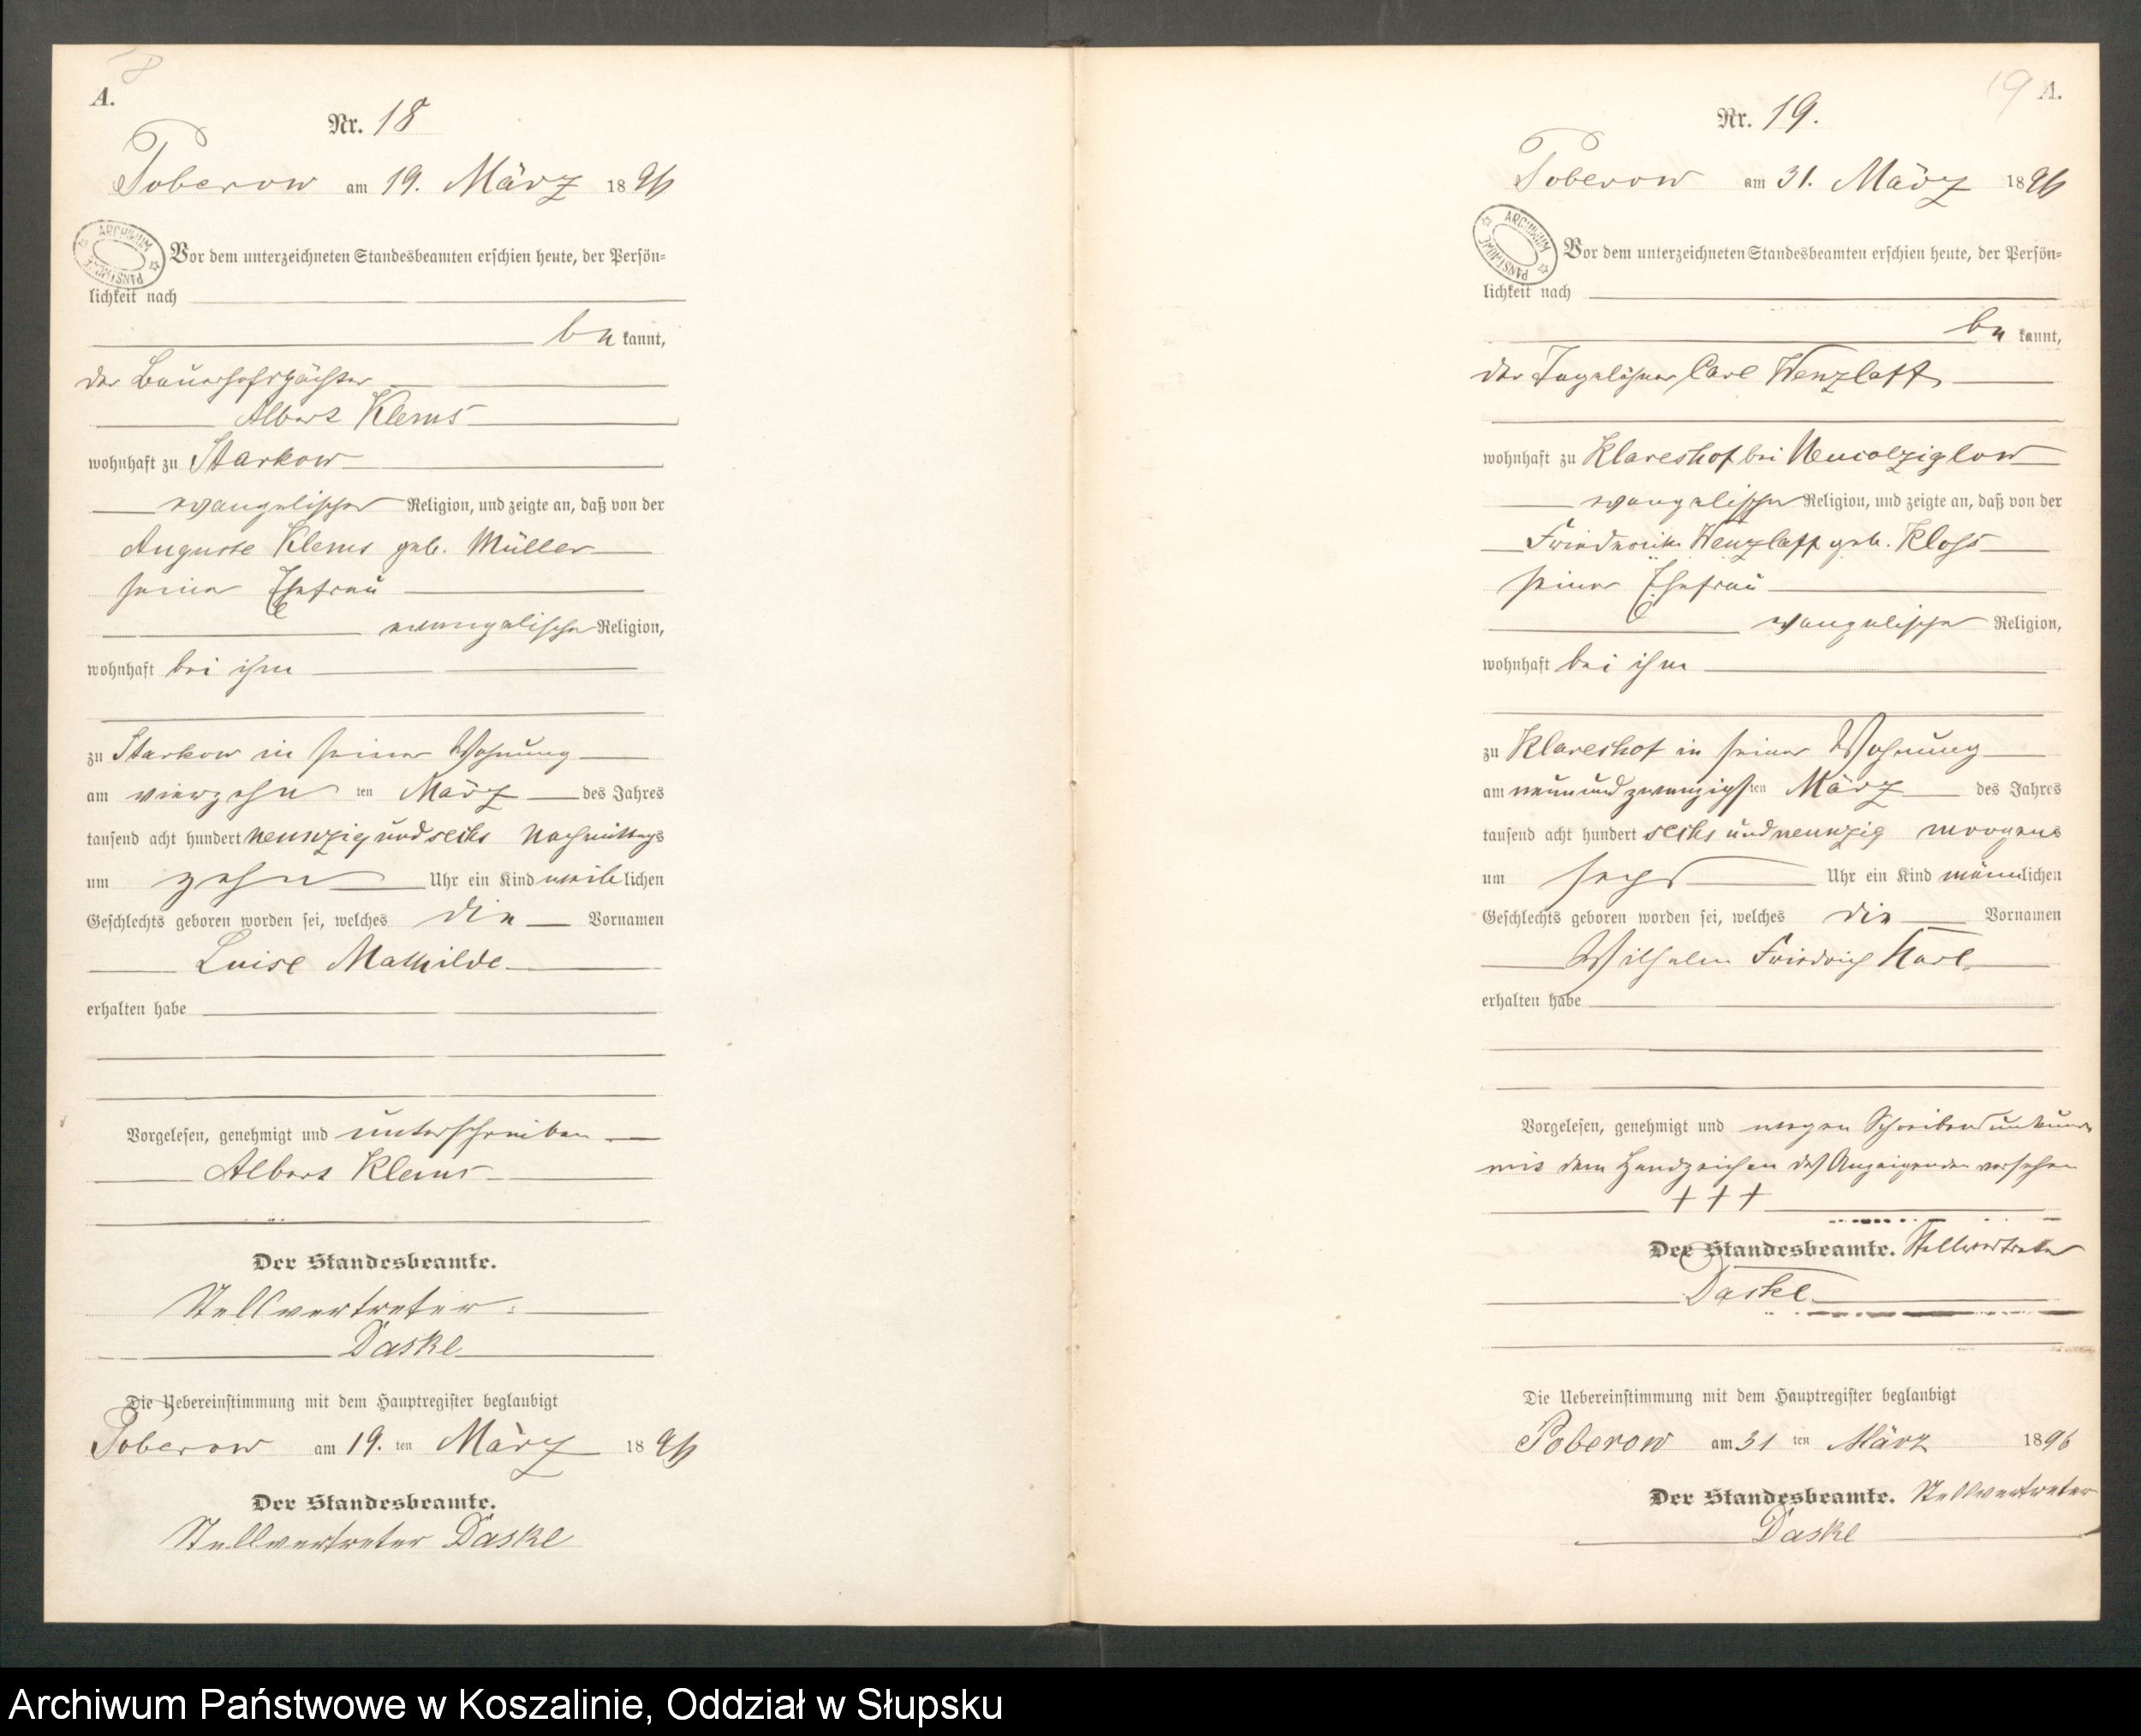 8
A.
Nr. 18
Poberow am 19. März 1896
ARCHIWUM PAŃSTWOWE
Vor dem unterzeichneten Standesbeamten erschien heute, der Persön-
lichkeit nach
be kannt,
der Bauerhofspächter
Albert Klems
wohnhaft zu Starkow
evangelischer Religion, und zeigte an, daß von der
Auguste Klems geb. Müller
seiner Ehefrau
evangelischer Religion,
wohnhaft bei ihm
zu Starkow in seiner Wohnung
am vierzehn ten März des Jahres
tausend acht hundert neunzig und sechs Nachmittags
um zehn Uhr ein Kind weiblichen
Geschlechts geboren worden sei, welches die Vornamen
Luise Mathilde
erhalten habe
Vorgelesen, genehmigt und unterschrieben
Albert Klems
Der Standesbeamte.
Stellvertreter:
Daske
Die Uebereinstimmung mit dem Hauptregister beglaubigt
Poberow am 19. ten März 1896
Der Standesbeamte.
Stellvertreter Daske
19 A.
Nr. 19.
Poberow am 31. März 1896
ARCHIWUM PAŃSTWOWE
Vor dem unterzeichneten Standesbeamten erschien heute, der Persön-
lichkeit nach
be kannt,
der Tagelöhner Carl Wenzlaff
wohnhaft zu Klareshof bei Neucolziglow
evangelischer Religion, und zeigte an, daß von der
Friederike Wenzlaff geb. Kloss
seiner Ehefrau
evangelischer Religion,
wohnhaft bei ihm
zu Klareshof in seiner Wohnung
am neunundzwanzigsten März des Jahres
tausend acht hundert sechs und neunzig morgens
um sechs Uhr ein Kind männlichen
Geschlechts geboren worden sei, welches die Vornamen
Wilhelm Friedrich Karl
erhalten habe
Vorgelesen, genehmigt und wegen Schreibensunkunde
mit dem Handzeichen des Anzeigenden versehen
+ + +
Der Standesbeamte. Stellvertreter
Daske
Die Uebereinstimmung mit dem Hauptregister beglaubigt
Poberow am 31 ten März 1896
Der Standesbeamte. Stellvertreter
Daske
Archiwum Państwowe w Koszalinie, Oddział w Słupsku